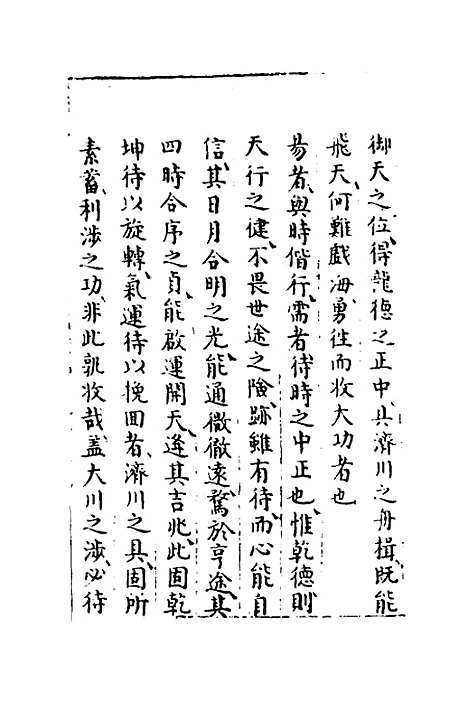 御天之位得龍德之正中具濟川之舟楫既能
飛天何難戲海勇往而收大功者也
昜者與時偕行需者待時之中正也惟乾德則
天行之健不畏世途之險跡雖有待而心能自
信其日月合明之光能通微徹遠騖於亨途其
四時合序之貞能啟運開天逢其吉兆此固乾
坤待以旋轉氣運待以挽回者濟川之具固所
素蓄利涉之功非此孰收哉蓋大川之涉必待